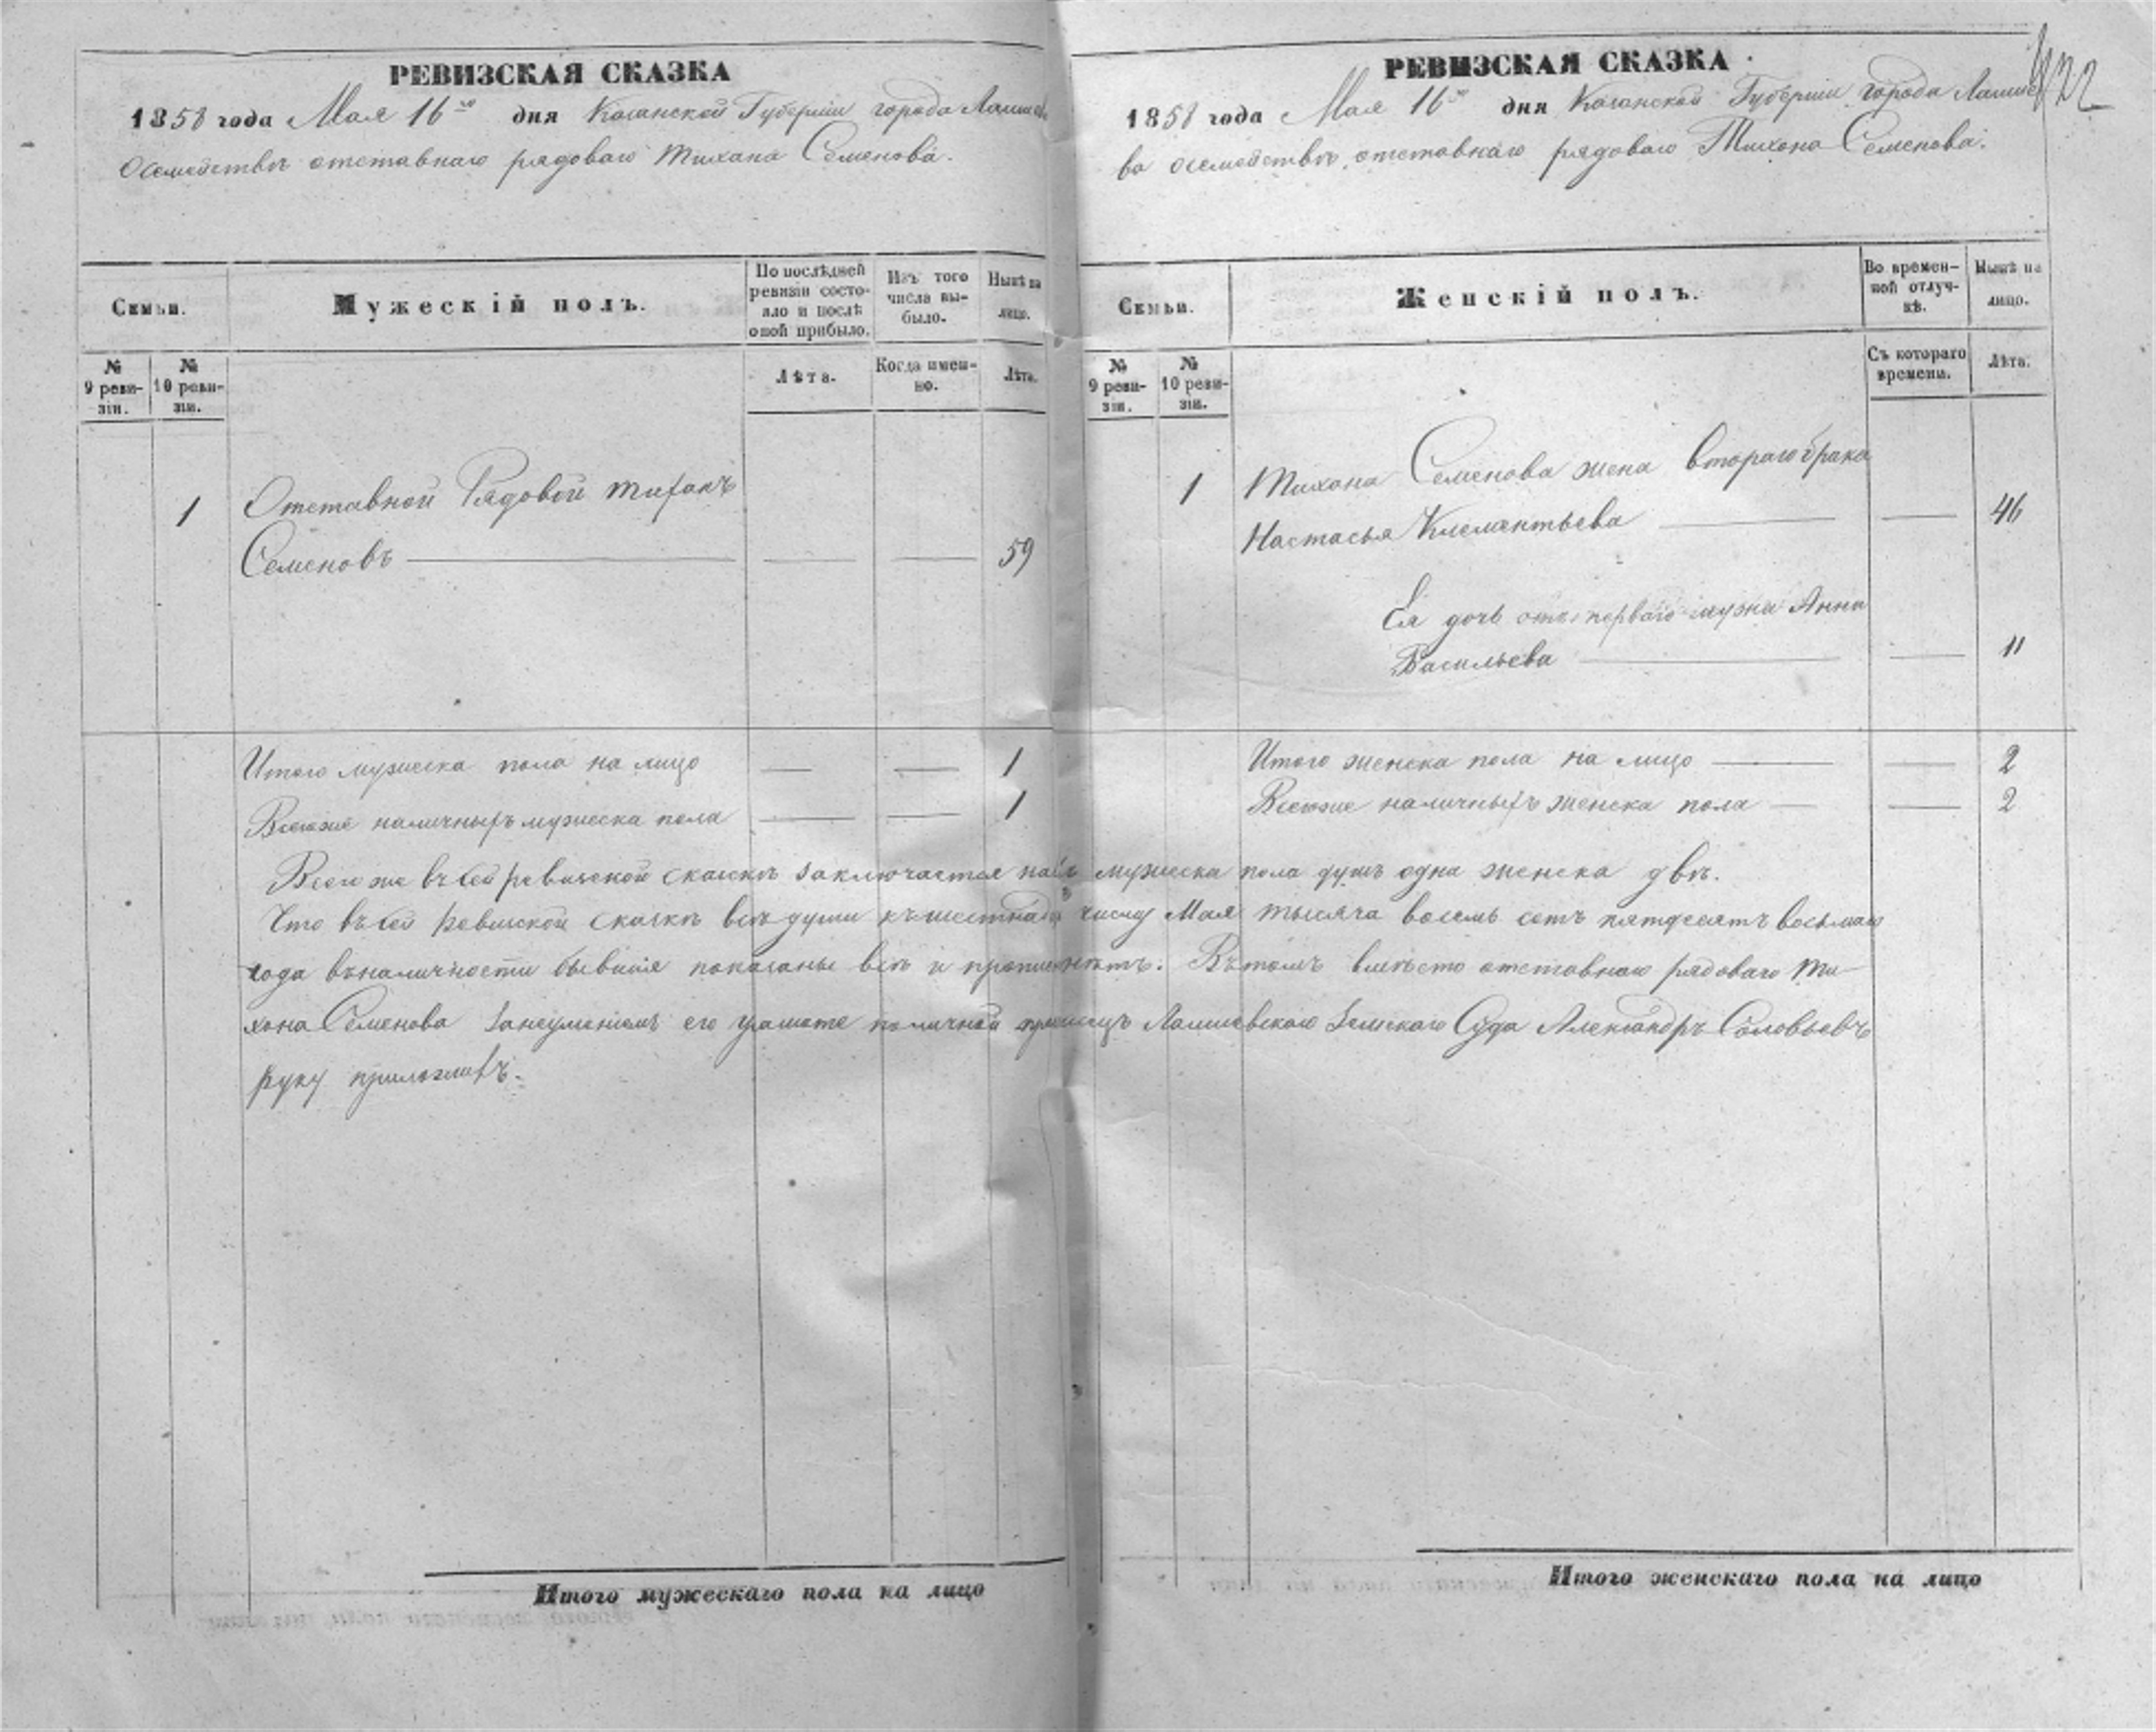 РЕВИЗСКАЯ СКАЗКА
1858 года Мая 16го дня Казанской Губерніи города Лаише
Осемействѣ отставнаго рядоваго Тихана Семенова.
Семьи.
Мужескій полъ.
По послѣдней ревизіи состояло и послѣ оной прибыло.
Изъ того числа выбыло.
Нынѣ на лицо.
№ 9 ревизіи.
№ 10 ревизіи.
Лѣта.
Когда именно.
Лѣта.
1 Отставной Рядовой Тиханъ
Семеновъ 59
Итого мужеска пола на лицо 1
Всегоже наличныхъ мужеска пола 1
РЕВИЗСКАЯ СКАЗКА
422
1858 года Мая 16го дня Казанской Губерніи города Лаише
ва осемействѣ отставнаго рядоваго Тихона Семенова.
Семьи.
Женскій полъ.
Во временной отлучкѣ.
Нынѣ на лицо.
№ 9 ревизіи.
№ 10 ревизіи.
Съ котораго времени.
Лѣта.
1 Тихона Семенова жена втораго брака
Настасья Клементьева 46
Ея дочь отъ перваго мужа Анна
Васильева 11
Итого женска пола на лицо 2
Всегоже наличныхъ женска пола 2
Всего же въ сей ревизской сказкѣ заключается мужеска пола душъ одна женска двѣ.
Что въ сей ревизской сказкѣ всѣ души къ числу Мая тысяча восемь сотъ пятдесятъ восьмаго
года въ наличности бывшія показаны всѣ и Въ томъ вмѣсто отставнаго рядоваго Ти-
хона Семенова занеуменіемъ его грамоте Лаишевскаго Земскаго Суда Александръ Соловьевъ
руку приложилъ.
Итого мужескаго пола на лицо
Итого женскаго пола на лицо